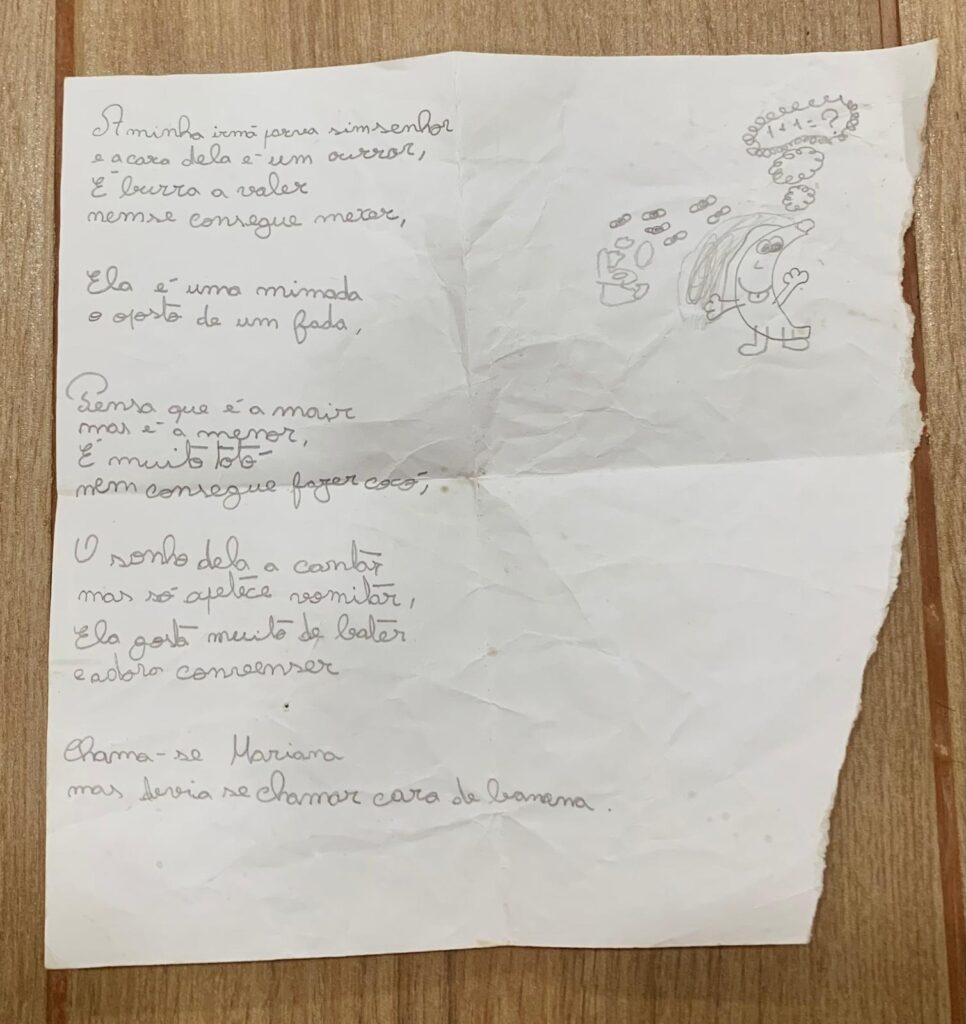 A minha irmã parva simsenhor
e a cara dela é um ourror,
É burra a valer
nemse consegue mexer,
Ela é uma mimada
o oposto de um fada,
Pensa que é a maior
mas é a menor,
É muito tótó
nem consegue fazer cocó,
O sonho dela a cantar
mas só apetece vomitar,
Ela gosta muito de bater
e adora convenser
Chama-se Mariana
mas devia se chamar cara de banana.
1+1=?